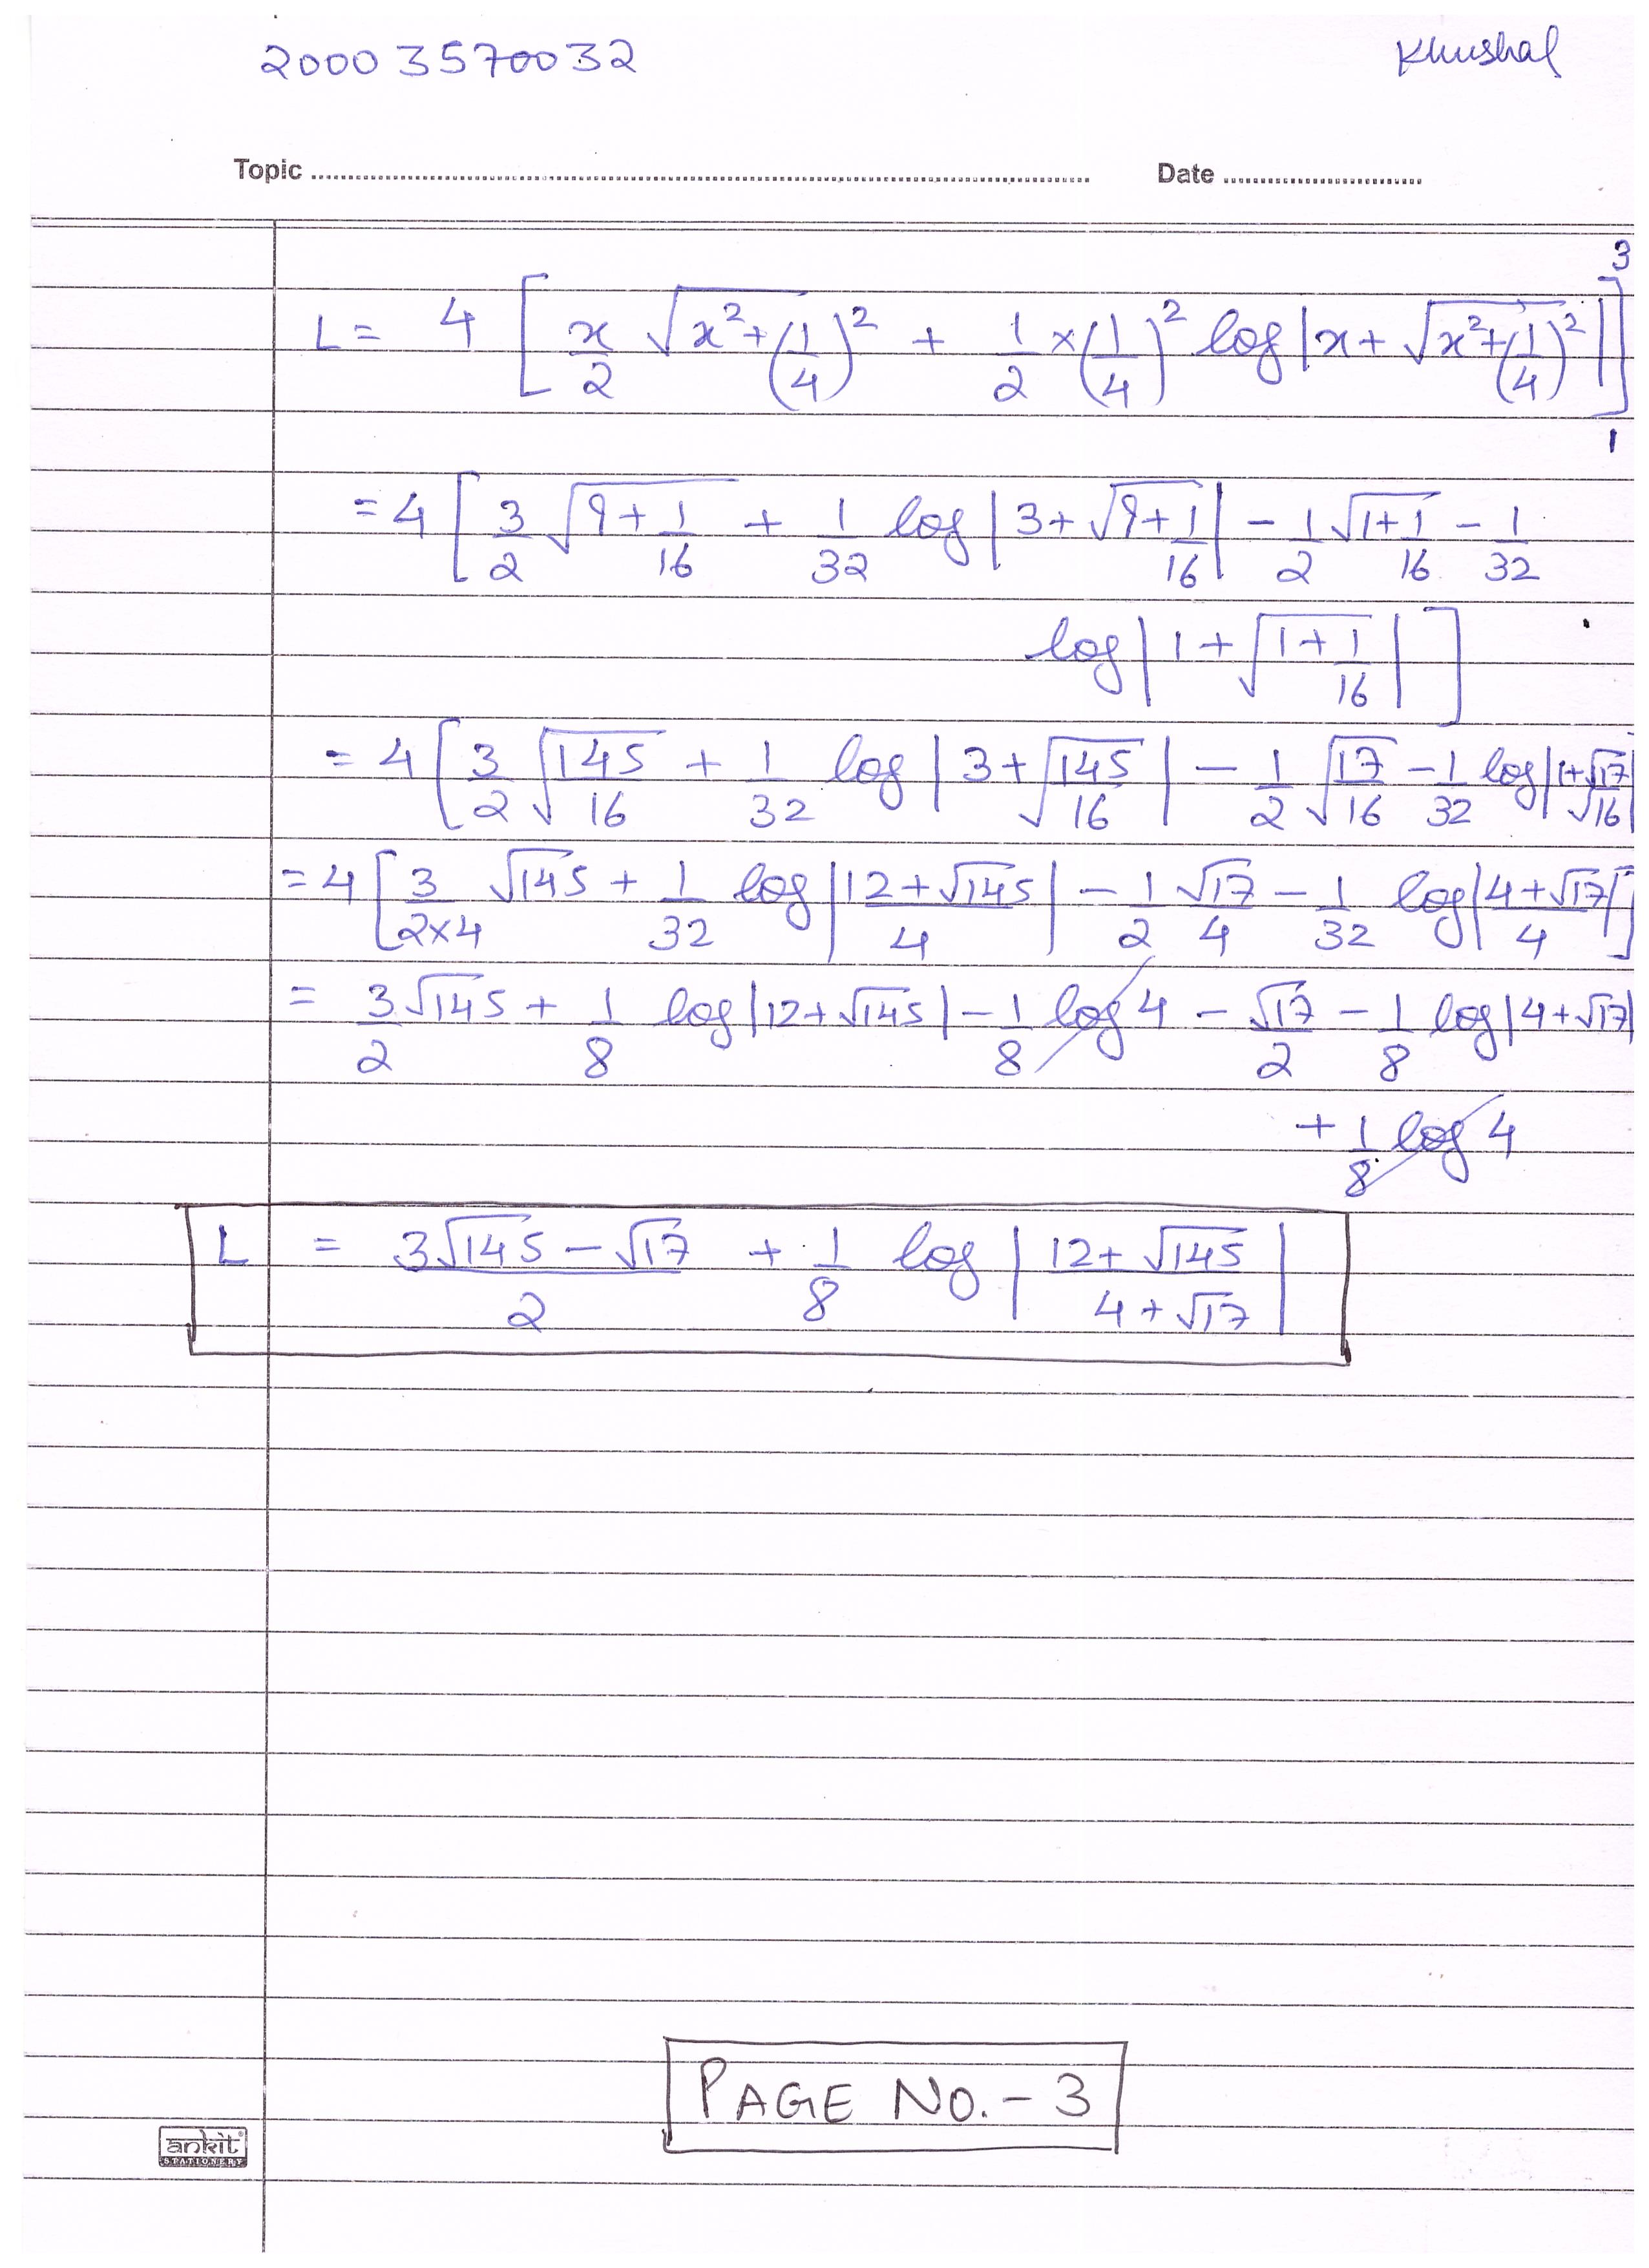 20003570032 Khushal
Topic ........ Date ........
L = 4 [ x/2 √(x² + (1/4)²) + 1/2 × (1/4)² log |x + √(x² + (1/4)²)| ]₁³
= 4 [ 3/2 √(9 + 1/16) + 1/32 log |3 + √(9 + 1/16)| - 1/2 √(1 + 1/16) - 1/32
log |1 + √(1 + 1/16)| ]
= 4 [ 3/2 √(145/16) + 1/32 log |3 + √(145/16)| - 1/2 √(17/16) - 1/32 log |1 + √(17/16)|
= 4 [ 3/(2×4) √145 + 1/32 log |(12 + √145)/4| - 1/2 √17/4 - 1/32 log |(4 + √17)/4| ]
= 3√145/2 + 1/8 log |12 + √145| - 1/8 log 4 - √17/2 - 1/8 log |4 + √17|
+ 1/8 log 4
L = (3√145 - √17)/2 + 1/8 log |(12 + √145)/(4 + √17)|
PAGE NO. - 3
ankit
STATIONERY